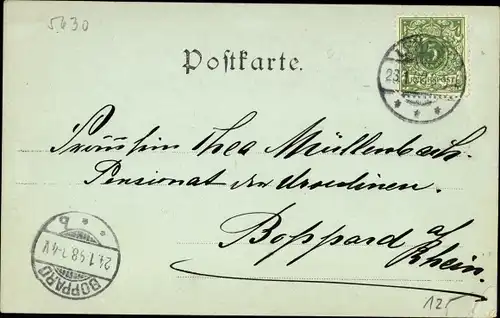 5.630
Postkarte.
5
23.1
Fräulein Thea Müllenbach.
Pensionat der Ursulinen.
Boppard a/
Rhein.
b
24.1.98.7-8V.
BOPPARD
125